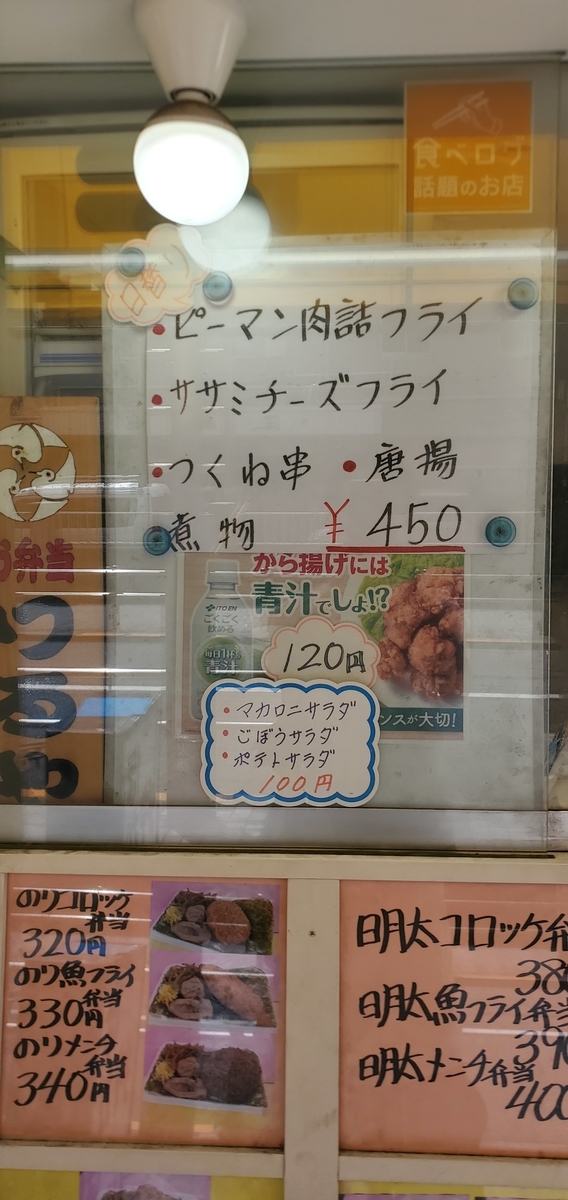 食べログ
話題のお店
日替り
・ピーマン肉詰フライ
・ササミチーズフライ
・つくね串 ・唐揚
煮物 ¥450
から揚げには
青汁でしょ!?
ITOEN
ごくごく
飲める
毎日1杯の
青汁
120円
ンスが大切!
・マカロニサラダ
・ごぼうサラダ
・ポテトサラダ
100円
弁当
つるや
のりコロッケ
弁当
320円
のり魚フライ
弁当
330円
のりメンチ
弁当
340円
明太コロッケ弁
38
明太魚フライ弁当
390
明太メンチ弁当
400